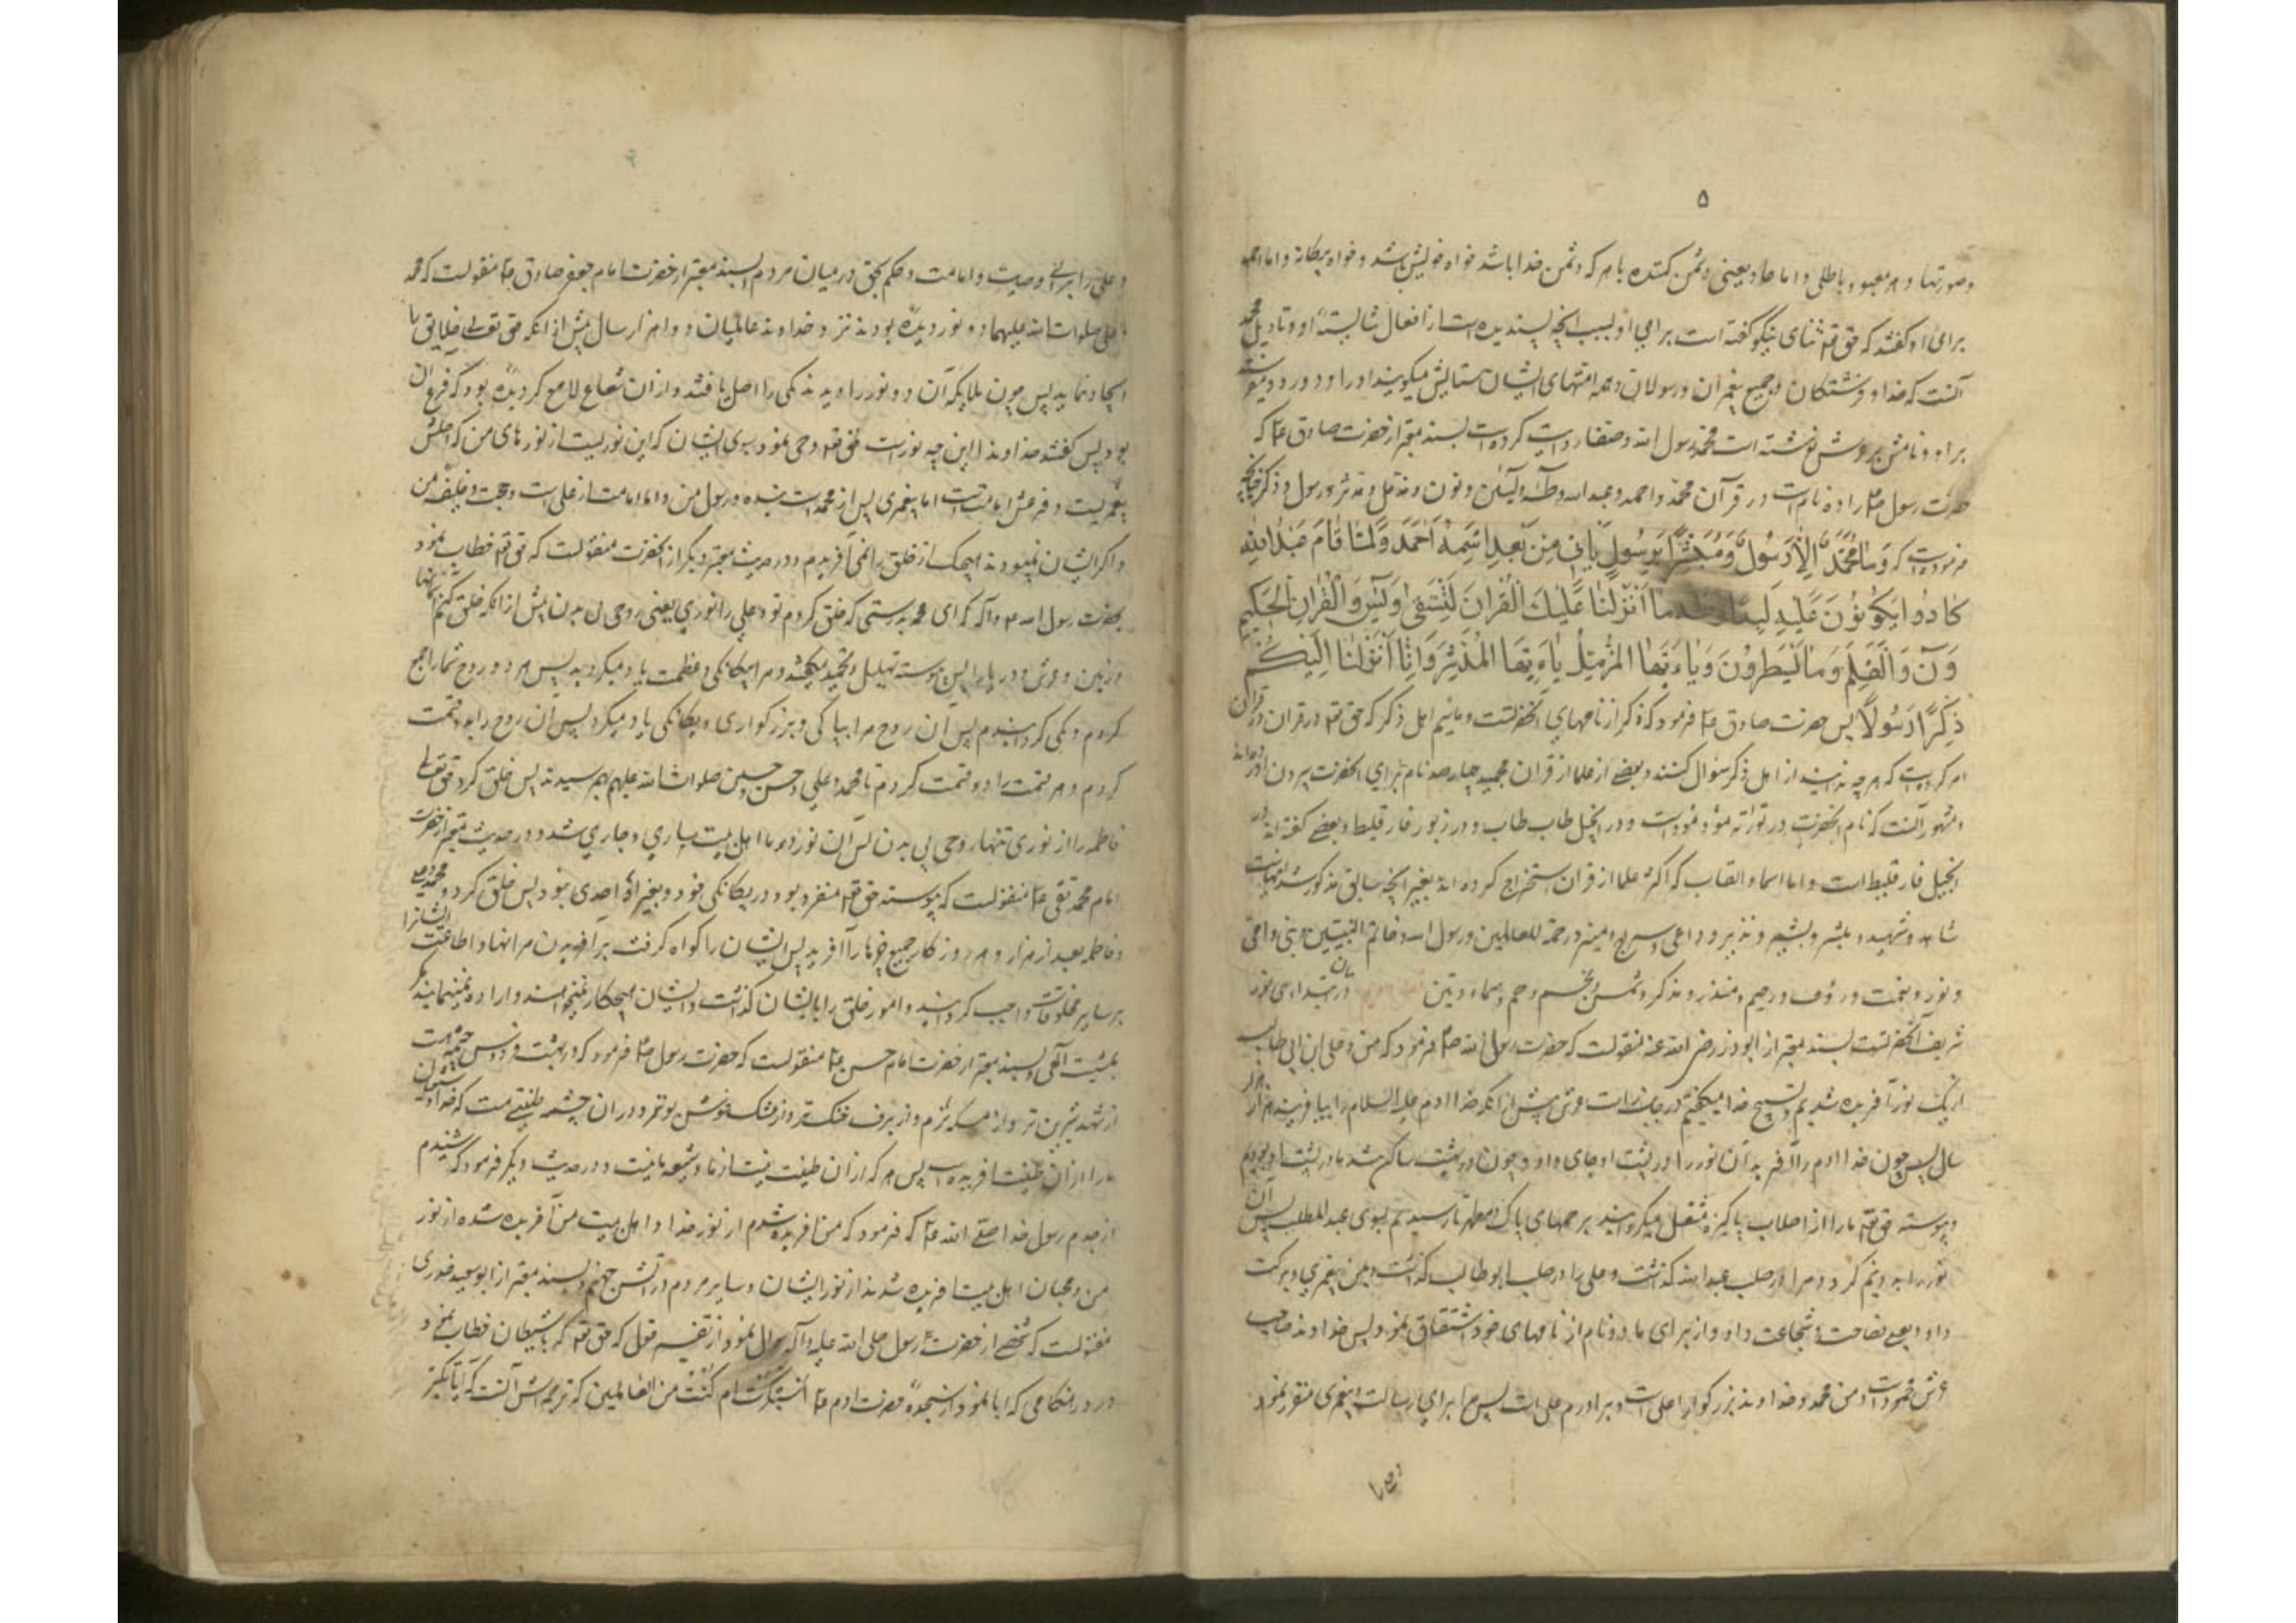 ۵
وصورتها و هر معبود باطلی و اما حاد یعنی دشمن کننده با هر که دشمن خدا باشد خواه خویش باشد و خواه بیگانه و اما احمد
برای او گفتند که حق تعه ثنای نیکو گفته است برای او بسبب آنچه پسندیده است از افعال شایستهٔ او و تاویل محمد
آنست که خدا و فرشتگان و جمیع پیغمبران و رسولان و همه امتهای ایشان ستایش میکویند او را و درود میفرستند
بر او و نامش بر عرش نوشته است محمد رسول الله و صفار روایت کرده است بسند معتبر از حضرت صادق ع که
حضرت رسول ص را ده نام است در قرآن محمد و احمد و عبد الله و طه و یس و نون و مزمل و مدثر و رسول و ذکر چنانچه
فرموده است که وَمَا مُحَمَّدٌ اِلّا رَسُولٌ وَمُبَشِّرًا بِرَسُولٍ یَأتی مِن بَعدِی اسمُهُ اَحمَدُ وَلَمّا قامَ عَبدُ اللهِ
کادُوا یَکُونُونَ عَلَیهِ لِبَدًا طه ما اَنزَلنا عَلَیکَ القُرآنَ لِتَشقی وَیس وَالقُرانِ الحَکیمِ
وَن وَالقَلَمِ وَما یَسطُرُونَ وَیا اَیُّهَا المُزَّمِّلُ یا اَیُّهَا المُدَّثِّرُ وَاِنّا اَنزَلنا اِلَیکُم
ذِکرًا رَسُولًا پس حضرت صادق ع فرمود که ذکر از نامهای آنحضرتست و مائیم اهل ذکر که حق تعه در قرآن
امر کرده است که هر چه ندانید از اهل ذکر سؤال کنید و بعضی از علما از قرآن مجید چهار صد نام برای آنحضرت بیرون آورده‌اند
و مشهور آنست که نام آنحضرت در توراة مؤد مؤد است و در انجیل طاب طاب و در زبور فارقلیط و بعضی گفته اند
انجیل فارقلیط است و اما اسما و القاب که اکثر علما از قرآن استخراج کرده اند بغیر آنچه سابق مذکور شد اینهاست
شاهد و شهید و مبشر و بشیر و نذیر و داعی و سراج و منیر و رحمة للعالمین و رسول الله و خاتم النبیین و نبی و امی
و نور و نعمت و رؤف و رحیم و منذر و مذکر و شمس و نجم و حم و سماء و تین در بیان ابتدای نور
شریف آنحضرتست بسند معتبر از ابوذر رضی الله عنه منقولست که حضرت رسول الله ص فرمود که من و علی ابن ابی طالب
از یک نور آفریده شدیم و تسبیح خدا میکفتیم در جانب راست عرش پیش از آنکه خدا آدم علیه السلام را بیافریند هزار
سال پس چون خدا آدم را آفرید آن نور را در پشت او جای داد و چون در بهشت ساکن شد ما در پشت او بودیم
و پیوسته حق تعه ما را از اصلاب پاکیزه منتقل میکردانید بر حمهای پاک و مطهر تا رسیدیم بسوی عبد المطلب پس آن
نور را بدو نیم کرد و مرا در صلب عبد الله کذاشت و علی را در صلب ابو طالب کذاشت و بمن پیغمبری و برکت
داد و بعلی فصاحت و شجاعت داد و از برای ما دو نام از نامهای خود اشتقاق نمود پس خداوند صاحب
عرش محمود است و من محمد و خداوند بزرگوار اعلی است و برادرم علی است پس مرا برای رسالت و پیغمبری مقرر نمود
و علی را برای وصیت و امامت و حکم بحق در میان مردم و بسند معتبر از حضرت امام جعفر صادق ع منقولست که محمد
و علی صلوات الله علیهما دو نور دیده بودند نزد خداوند عالمیان دو هزار سال پیش از آنکه حق تعالی خلایق را
ایجاد نماید پس چون ملایکه آن دو نور را دیدند یکی را اصل یافتند و از آن شعاع لامع کردیده بود که فرع آن
بود پس گفتند خداوندا این چه نور است حق تعه وحی نمود بسوی ایشان که این نوریست از نورهای من که اصلش
پیغمبریست و فرعش امامتست اما پیغمبری پس از محمد است بنده و رسول من و اما امامت از علی است و حجت و خلیفه من
و اگر ایشان نمیبودند هیچیک از خلق را نمی آفریدم و در حدیث معتبر دیگر از آنحضرت منقولست که حق تعه خطاب نمود
بحضرت رسول ص و آله که ای محمد بدرستی که خلق کردم تو و علی را نوری یعنی روحی بی بدن پیش از آنکه خلق کنم آسمانها
و زمین و عرش و دریا را پس پیوسته تهلیل و تمجید میکفتید و مرا بیکانکی و عظمت یاد میکردید پس هر دو روح شما را جمع
کردم و یکی کردانیدم پس آن روح مرا بپاکی و بزرکواری و یکانکی یاد میکرد پس آن روح را بدو قسمت
کردم و هر قسمت را دو قسمت کردم تا محمد و علی و حسن و حسین صلوات الله علیهم بهم رسیدند پس خلق کرد حق تعالی
فاطمه را از نوری تنها روحی بی بدن پس آن نور در ما اهل بیت ساری و جاری شد و در حدیث معتبر از حضرت
امام محمد تقی ع منقولست که پیوسته حق تعه منفرد بود در یکانکی خود و بغیر او احدی نبود پس خلق کرد محمد و علی
و فاطمه بعد از هزار دهر روزکار جمیع چیزها را آفرید پس ایشان را کواه کرفت بر آفریدن مر آنها و اطاعت ایشانرا
بر سایر مخلوقات واجب کردانید و امور خلق را بایشان کذاشت و ایشان هیچکار نمیخواهند و اراده نمینمایند مکر
بمشیت الهی و بسند معتبر از حضرت امام حسن ع منقولست که حضرت رسول ص فرمود که در بهشت فردوس چشمه هست
از شهد شیرین تر و از مسکه نرم و از برف خنک تر و از مشک خوش بوتر و در آن چشمه طینتی هست که خداوند
ما را از آن طینت آفریده است پس هر که از آن طینت نیست از ما و شیعه ما نیست و در حدیث دیگر فرمود که شنیدم
از جدم رسول خدا صلی الله ع که فرمود که من آفریده شدم از نور خدا و اهل بیت من آفریده شده از نور
من و محبان اهل بیت آفریده شدند از نور ایشان و سایر مردم در آتش جهنم و بسند معتبر از ابو سعید خدری
منقولست که شخصی از حضرت رسول صلی الله علیه و آله سؤال نمود از تفسیر قول که حق تعه که بشیطان خطاب نمود
در هنکامی که ابا نمود از سجدهٔ حضرت آدم ع اَستَکبَرتَ ام کُنتَ من العالین که ترجمه اش آنست که آیا تکبر